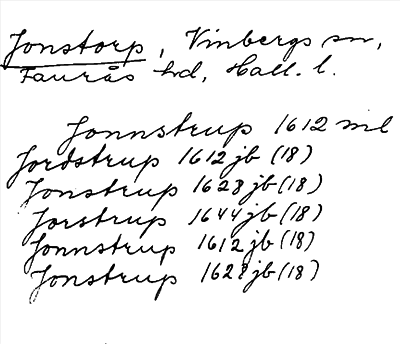 Jonstorp, Vinbergs sn,
Faurås hd, Hall. l.
Jonnstrup 1612 ml
Jordstrup 1612 jb (18)
Jonstrup 1628 jb (18)
Jorstrup 1644 jb (18)
Jonnstrup 1612 jb (18)
Jonstrup 1628 jb (18)